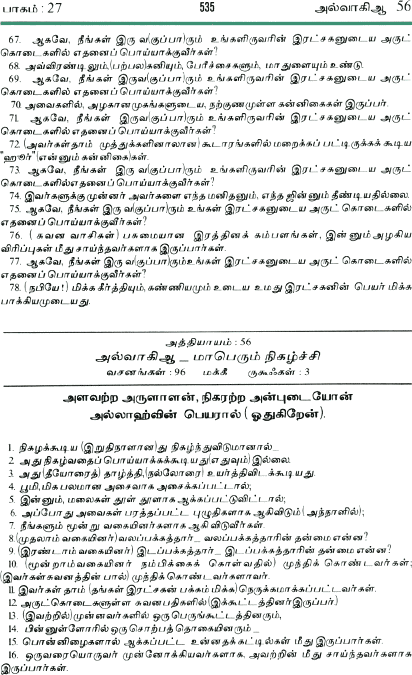 பாகம் : 27 535 அல்வாகிஆ 56
67. ஆகவே, நீங்கள் இரு வ(குப்பா)ரும் உங்களிருவரின் இரட்சகனுடைய அருட்
கொடைகளில் எதனைப் பொய்யாக்குவீர்கள்?
68. அவ்விரண்டிலும்,(பற்பல)கனியும், பேரீச்சைகளும், மாதுளையும் உண்டு.
69. ஆகவே, நீங்கள் இருவ(குப்பா)ரும் உங்களிருவரின் இரட்சகனுடைய அருட்
கொடைகளில் எதனைப் பொய்யாக்குவீர்கள்?
70. அவைகளில், அழகானமுகங்களுடைய, நற்குணமுள்ள கன்னிகைகள் இருப்பர்.
71. ஆகவே, நீங்கள் இருவ(குப்பா)ரும் உங்களிருவரின் இரட்சகனுடைய அருட்
கொடைகளில் எதனைப் பொய்யாக்குவீர்கள்?
72. (அவர்கள்தாம் முத்துக்களினாலான) கூடாரங்களில் மறைக்கப் பட்டிருக்கக் கூடிய
"ஹூர்" (என்னும் கன்னிகை)கள்.
73. ஆகவே, நீங்கள் இரு வ(குப்பா)ரும் உங்களிருவரின் இரட்சகனுடைய அருட்
கொடைகளில்எதனைப் பொய்யாக்குவீர்கள்?
74. இவர்களுக்கு முன்னர் அவர்களை எந்த மனிதனும், எந்த ஜின்னும் தீண்டியதில்லை.
75. ஆகவே, நீங்கள் இரு வ(குப்பா)ரும் உங்கள் இரட்சகனுடைய அருட் கொடைகளில்
எதனைப் பொய்யாக்குவீர்கள்?
76. (சுவன வாசிகள்) பசுமையான இரத்தினக் கம்பளங்கள், இன்னும்அழகிய
விரிப்புகள் மீது சாய்ந்தவர்களாக இருப்பார்கள்.
77. ஆகவே, நீங்கள் இருவ(குப்பா)ரும்உங்கள் இரட்சகனுடைய அருட் கொடைகளில்
எதனைப் பொய்யாக்குவீர்கள்?
78. (நபியே!) மிக்க கீர்த்தியும், கண்ணியமும் உடைய உமது இரட்சகனின் பெயர் மிக்க
பாக்கியமுடையது.
அத்தியாயம் : 56
அல்வாகிஆ _ மாபெரும் நிகழ்ச்சி
வசனங்கள் : 96 மக்கீ ருகூஃகள் : 3
அளவற்ற அருளாளன், நிகரற்ற அன்புடையோன்
அல்லாஹ்வின் பெயரால் (ஓதுகிறேன்).
1. நிகழக்கூடிய (இறுதிநாளான)து நிகழ்ந்துவிடுமானால்_
2. அது நிகழ்வதைப் பொய்யாக்கக்கூடியது(எதுவும்) இல்லை.
3. அது(தீயோரைத்) தாழ்த்தி,(நல்லோரை) உயர்த்திவிடக்கூடியது.
4. பூமி, மிக பலமான அசைவாக அசைக்கப்பட்டால்;
5. இன்னும், மலைகள் தூள் தூளாக ஆக்கப்பட்டுவிட்டால்;
6. அப்போது அவைகள் பரத்தப்பட்ட புழுதிகளாக ஆகிவிடும் (அந்நாளில்);
7. நீங்களும் மூன்று வகையினர்களாக ஆகி விடுவீர்கள்.
8.(முதலாம் வகையினர்) வலப்பக்கத்தார்_ வலப்பக்கத்தாரின் தன்மை என்ன?
9. (இரண்டாம் வகையினர்) இடப்பக்கத்தார்_ இடப்பக்கத்தாரின் தன்மை என்ன?
10. (மூன்றாம்வகையினர் நம்பிக்கைக் கொள்வதில்) முந்திக் கொண்டவர்கள்;
(இவர்கள்சுவனத்தின் பால்) முந்திக்கொண்டவர்களாவர்.
11. இவர்கள் தாம் (தங்கள் இரட்சகன் பக்கம் மிக்க) நெருக்கமாக்கப்பட்டவர்கள்.
12. அருட்கொடைகளுள்ள சுவனபதிகளில்(இக்கூட்டத்தினர்இருப்பர்)
13. (இவற்றில்)முன்னவர்களில் ஒருபெருங்கூட்டத்தினரும்,
14. பின்னுள்ளோரில் ஒருசொற்பத் தொகையினரும் _
15. பொன்னிழைகளால் ஆக்கப்பட்ட உன்னதக்கட்டில்கள் மீது இருப்பார்கள்.
16. ஒருவரையொருவர் முன்னோக்கியவர்களாக, அவற்றின் மீது சாய்ந்தவர்களாக
இருப்பார்கள்.